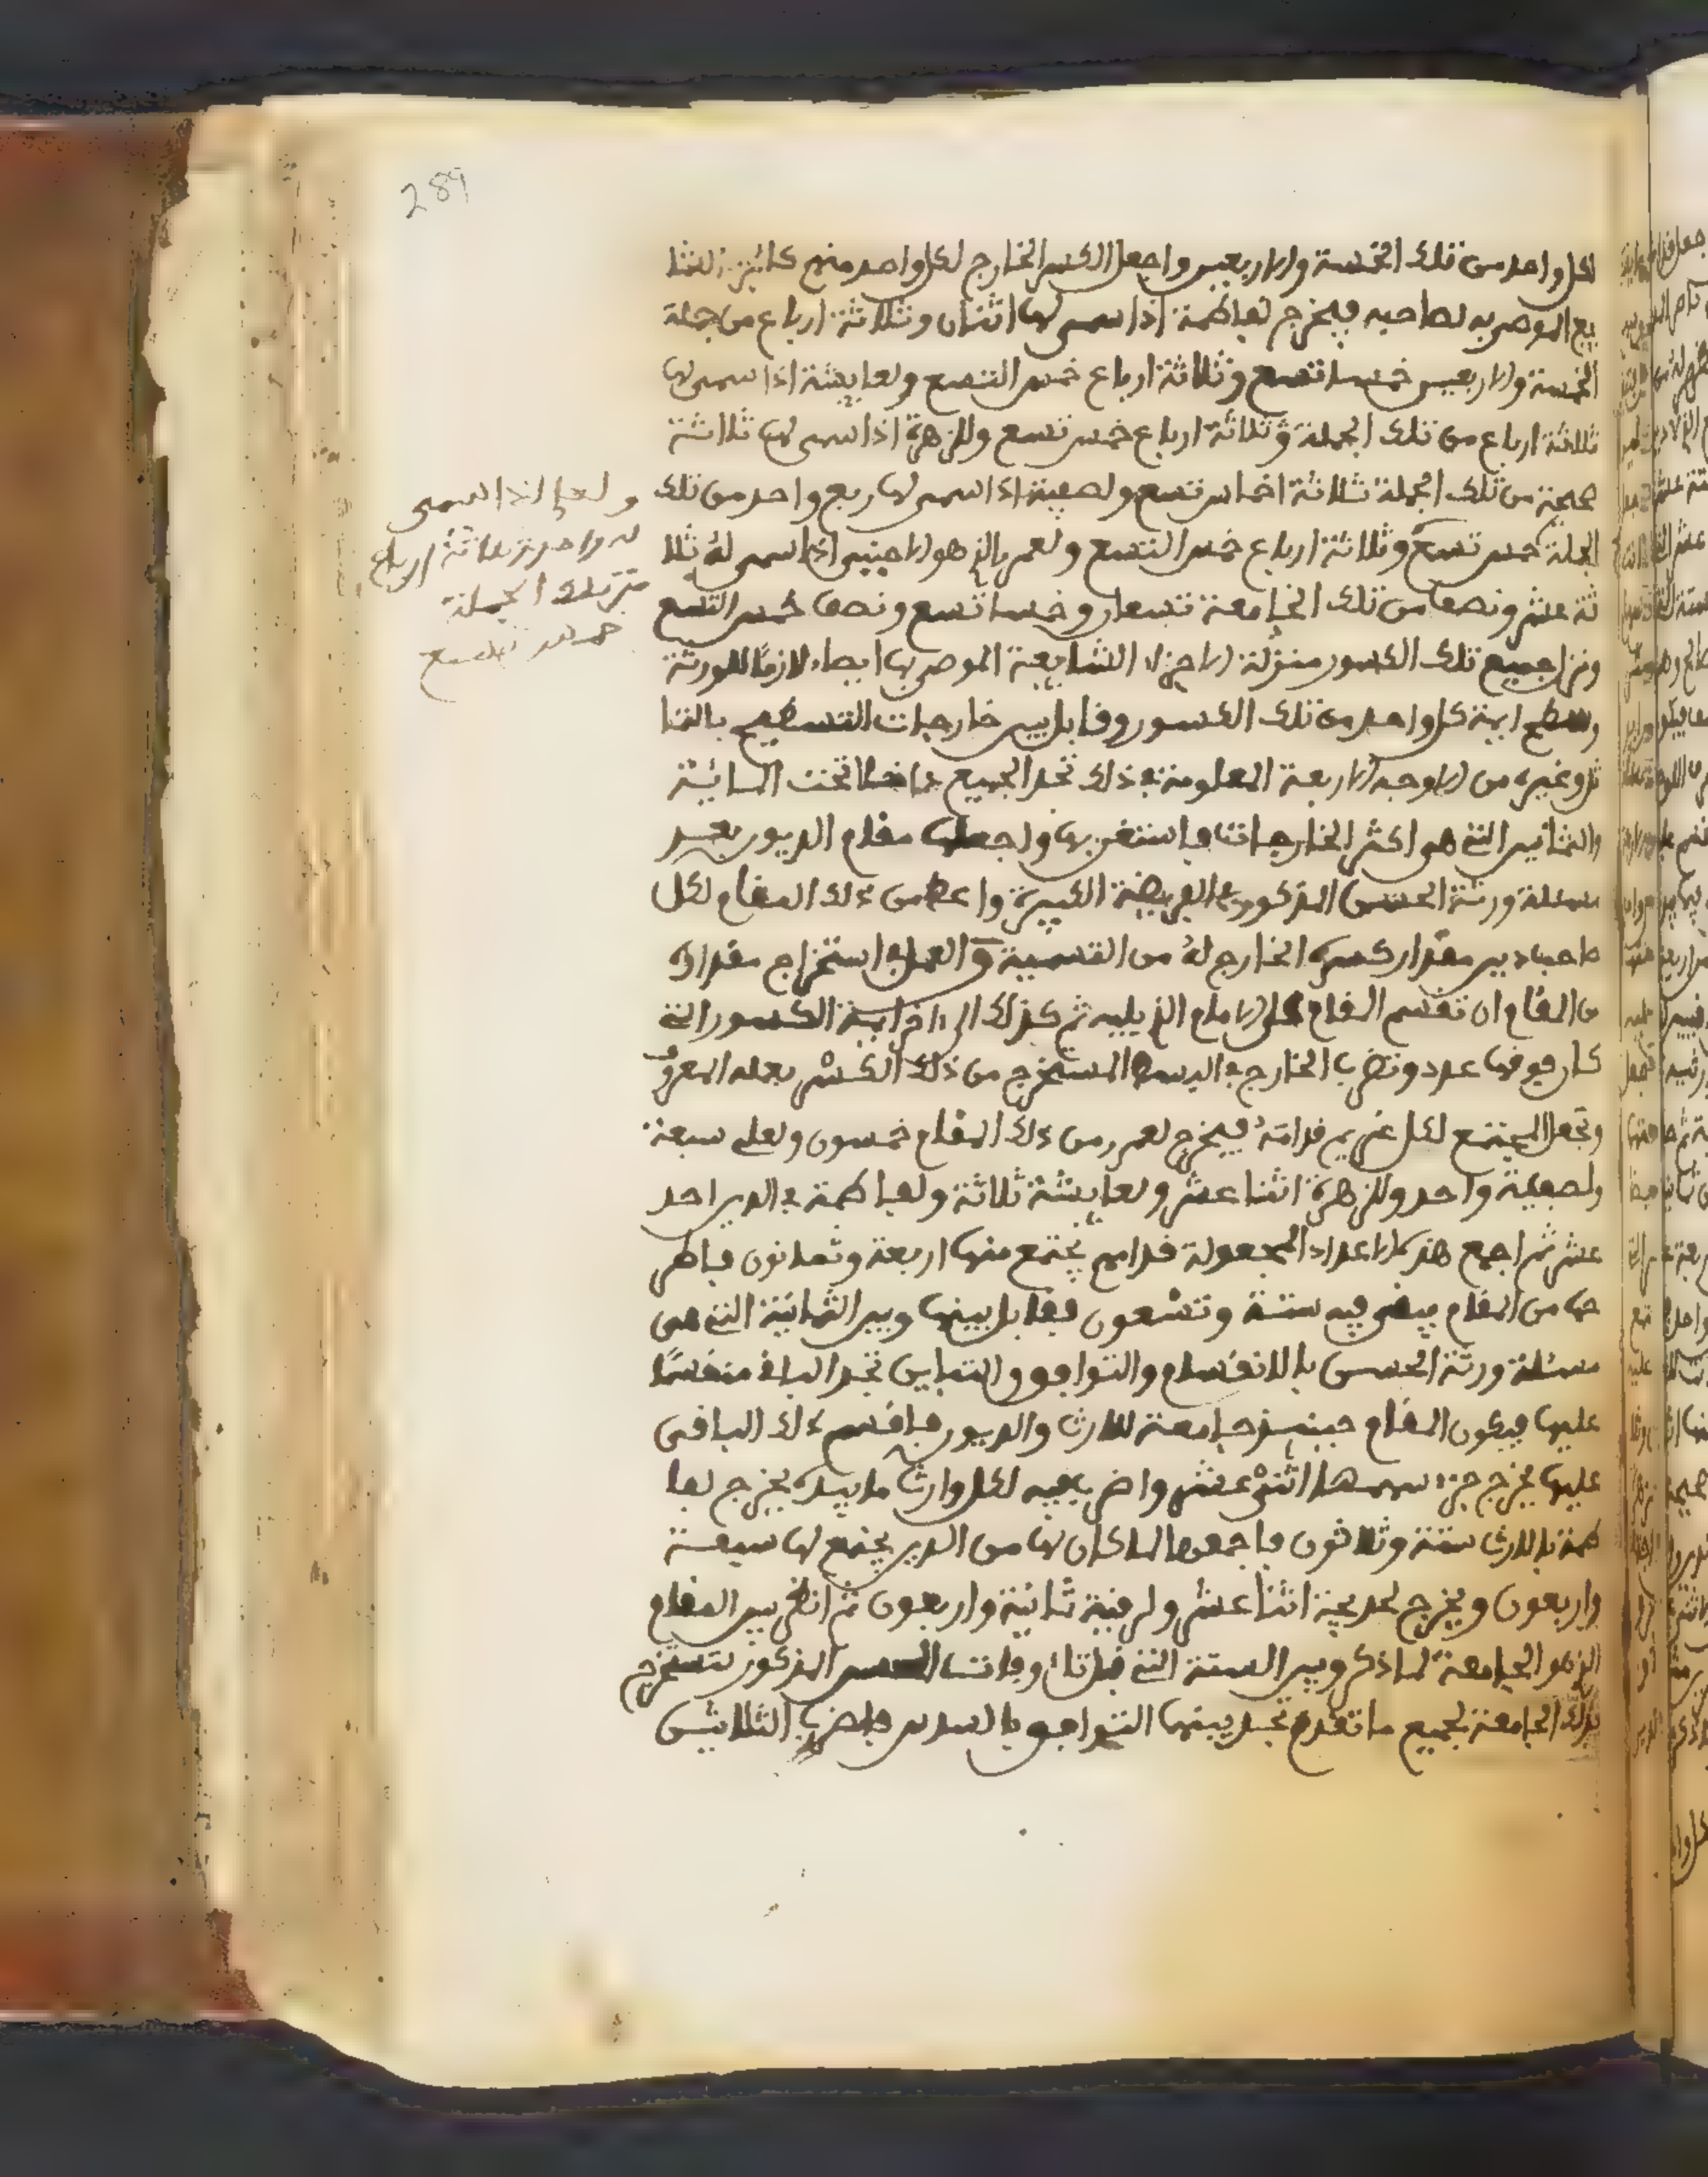 289
لكل واحد من تلك الخمسة والاربعين واجعل الكسر الخارج لكل واحد منهم كالجزء الشا
يع الموصى به لصاحبه فيخرج لفاطمة اذا سمى لها اثنان وثلاثة ارباع من جملة
الخمسة والاربعين خمسا تسع وثلاثة ارباع خمس التسع ولعايشة اذا سمى لها
ثلاثة ارباع من تلك الجملة وثلاثة ارباع خمس تسع وللزهرة اذا سمى لها ثلاثة
صحيحة من تلك الجملة ثلاثة اخماس تسع ولصفية اذا سمى لها ربع واحد من تلك
الجملة خمس تسع وثلاثة ارباع خمس التسع ولعمر الذي هو الاجنبي اذا سمى له ثلا
ثة عشر ونصف من تلك الجامعة تسعان وخمسا تسع ونصف خمس التسع
ونزل جميع تلك الكسور منزلة الاجزاء الشايعة الموصى بها ايصاء لازما للورثة
وسطح ايمة كل واحد من تلك الكسور وقابل بين خارجات التسطيح بالتما
ثل وغيره من الاوجه الاربعة المعلومة في ذلك تجد الجميع داخلا تحت المائة
والثمانين التي هو اكثر الخارجات فاستغن بها واجعلها مقام الديون بعد
مسئلة ورثة الحسن المذكور في الفريضة الكبيرة واعط من ذلك المقام لكل
صاحب دين مقدار كسره الخارج له من القسمة والعمل في استخراج مقداره
من المقام ان تقسم المقام على الامام الذي يليه ثم كذلك الى ءاخر ايمة الكسور التي
كان فوقها عدد وتضرب الخارج في البسط المستخرج من ذلك الكسر بعمله المعروف
وتجعل المجتمع لكل غريم قدامه فيخرج لعمر من ذلك المقام خمسون ولعلي سبعة
ولصفية واحد وللزهرة اثنا عشر ولعايشة ثلاثة ولفاطمة في الدين احد
عشر ثم اجمع هذه الاعداد المجعولة قدامهم يجتمع منها اربعة وثمانون فاطر
حها من المقام يبقى فيه ستة وتسعون فقابل بينها وبين الثمانية التي هي
مسئلة ورثة الحسن بالانقسام والتوافق والتباين تجد الباقي منقسما
عليها فيكون المقام حينئذ جامعة للارث والديون فاقسم ذلك الباقي
عليها يخرج جزء سهمها اثنى عشر واضرب فيه لكل وارث ما بيده يخرج لفا
طمة بالارث ستة وثلاثون فاجمعها لما كان لها من الدين يجتمع لها سبعة
واربعون ويخرج لخديجة اثنا عشر ولرقية ثمانية واربعون ثم انظر بين المقام
الذي هو الجامعة لما ذكر وبين الستة التي قبل تلك وفاتت الحسن المذكور لتستخرج
بذلك الجامعة لجميع ما تقدم تجد بينها التوافق بالسدس فاضرب الثلاثين
ولعلي اذا سمى
له واحد وثلاثة ارباع
من تلك الجملة
خمس تسع